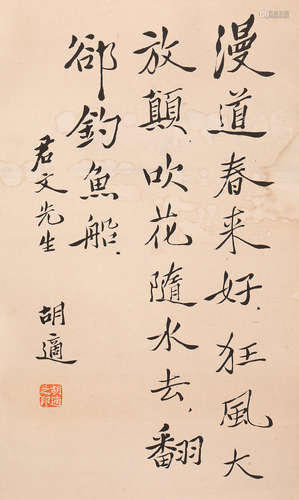 漫道春来好.狂風大
放顛.吹花隨水去.翻
郤釣魚船.
君文先生
胡適
胡適之印